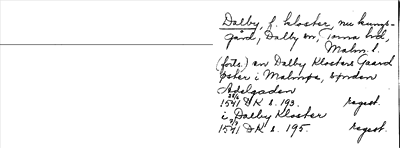 Dalby, f. kloster, nu kungs-
gård, Dalby sn, Torna hd,
Malm. l.
(forts.) an Dalby Klosters Gaard
øster i Malmøe, synden
Adelgaden
1541 DK s. 193. regest.
i Dalby Kloster
1541 DK s. 195. regest.